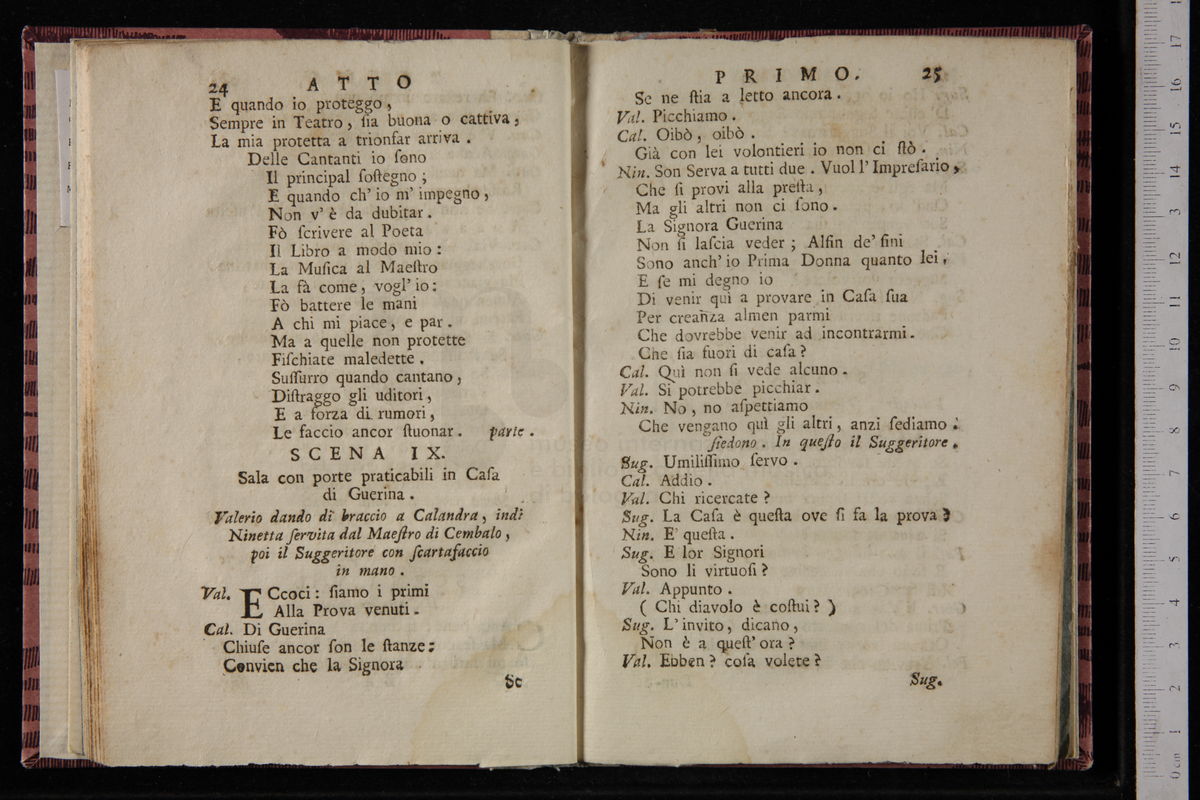 24 ATTO
E quando io proteggo,
Sempre in Teatro, ſia buona o cattiva,
La mia protetta a trionfar arriva.
Delle Cantanti io ſono
Il principal ſoſtegno;
E quando ch' io m' impegno,
Non v' è da dubitar.
Fò ſcrivere al Poeta
Il Libro a modo mio:
La Muſica al Maeſtro
La fà come, vogl' io:
Fò battere le mani
A chi mi piace, e par.
Ma a quelle non protette
Fiſchiate maledette.
Suſſurro quando cantano,
Diſtraggo gli uditori,
E a forza di rumori,
Le faccio ancor ſtuonar. parte.
SCENA IX.
Sala con porte praticabili in Caſa
di Guerina.
Valerio dando di braccio a Calandra, indi
Ninetta ſervita dal Maeſtro di Cembalo,
poi il Suggeritore con ſcartafaccio
in mano.
Val. ECcoci: ſiamo i primi
Alla Prova venuti.
Cal. Di Guerina
Chiuſe ancor ſon le ſtanze;
Convien che la Signora
Se
PRIMO. 25
Se ne ſtia a letto ancora.
Val. Picchiamo.
Cal. Oibò, oibò.
Già con lei volontieri io non ci ſtò.
Nin. Son Serva a tutti due. Vuol l' Impreſario,
Che ſi provi alla preſta,
Ma gli altri non ci ſono.
La Signora Guerina
Non ſi laſcia veder; Alfin de' fini
Sono anch' io Prima Donna quanto lei,
E ſe mi degno io
Di venir quì a provare in Caſa ſua
Per creanza almen parmi
Che dovrebbe venir ad incontrarmi.
Che ſia fuori di caſa?
Cal. Quì non ſi vede alcuno.
Val. Si potrebbe picchiar.
Nin. No, no aſpettiamo
Che vengano quì gli altri, anzi ſediamo.
ſiedono. In queſto il Suggeritore.
Sug. Umiliſſimo ſervo.
Cal. Addio.
Val. Chi ricercate?
Sug. La Caſa è queſta ove ſi fa la prova?
Nin. E' queſta.
Sug. E lor Signori
Sono li virtuoſi?
Val. Appunto.
( Chi diavolo è coſtui? )
Sug. L' invito, dicano,
Non è a queſt' ora?
Val. Ebben? coſa volete?
Sug.